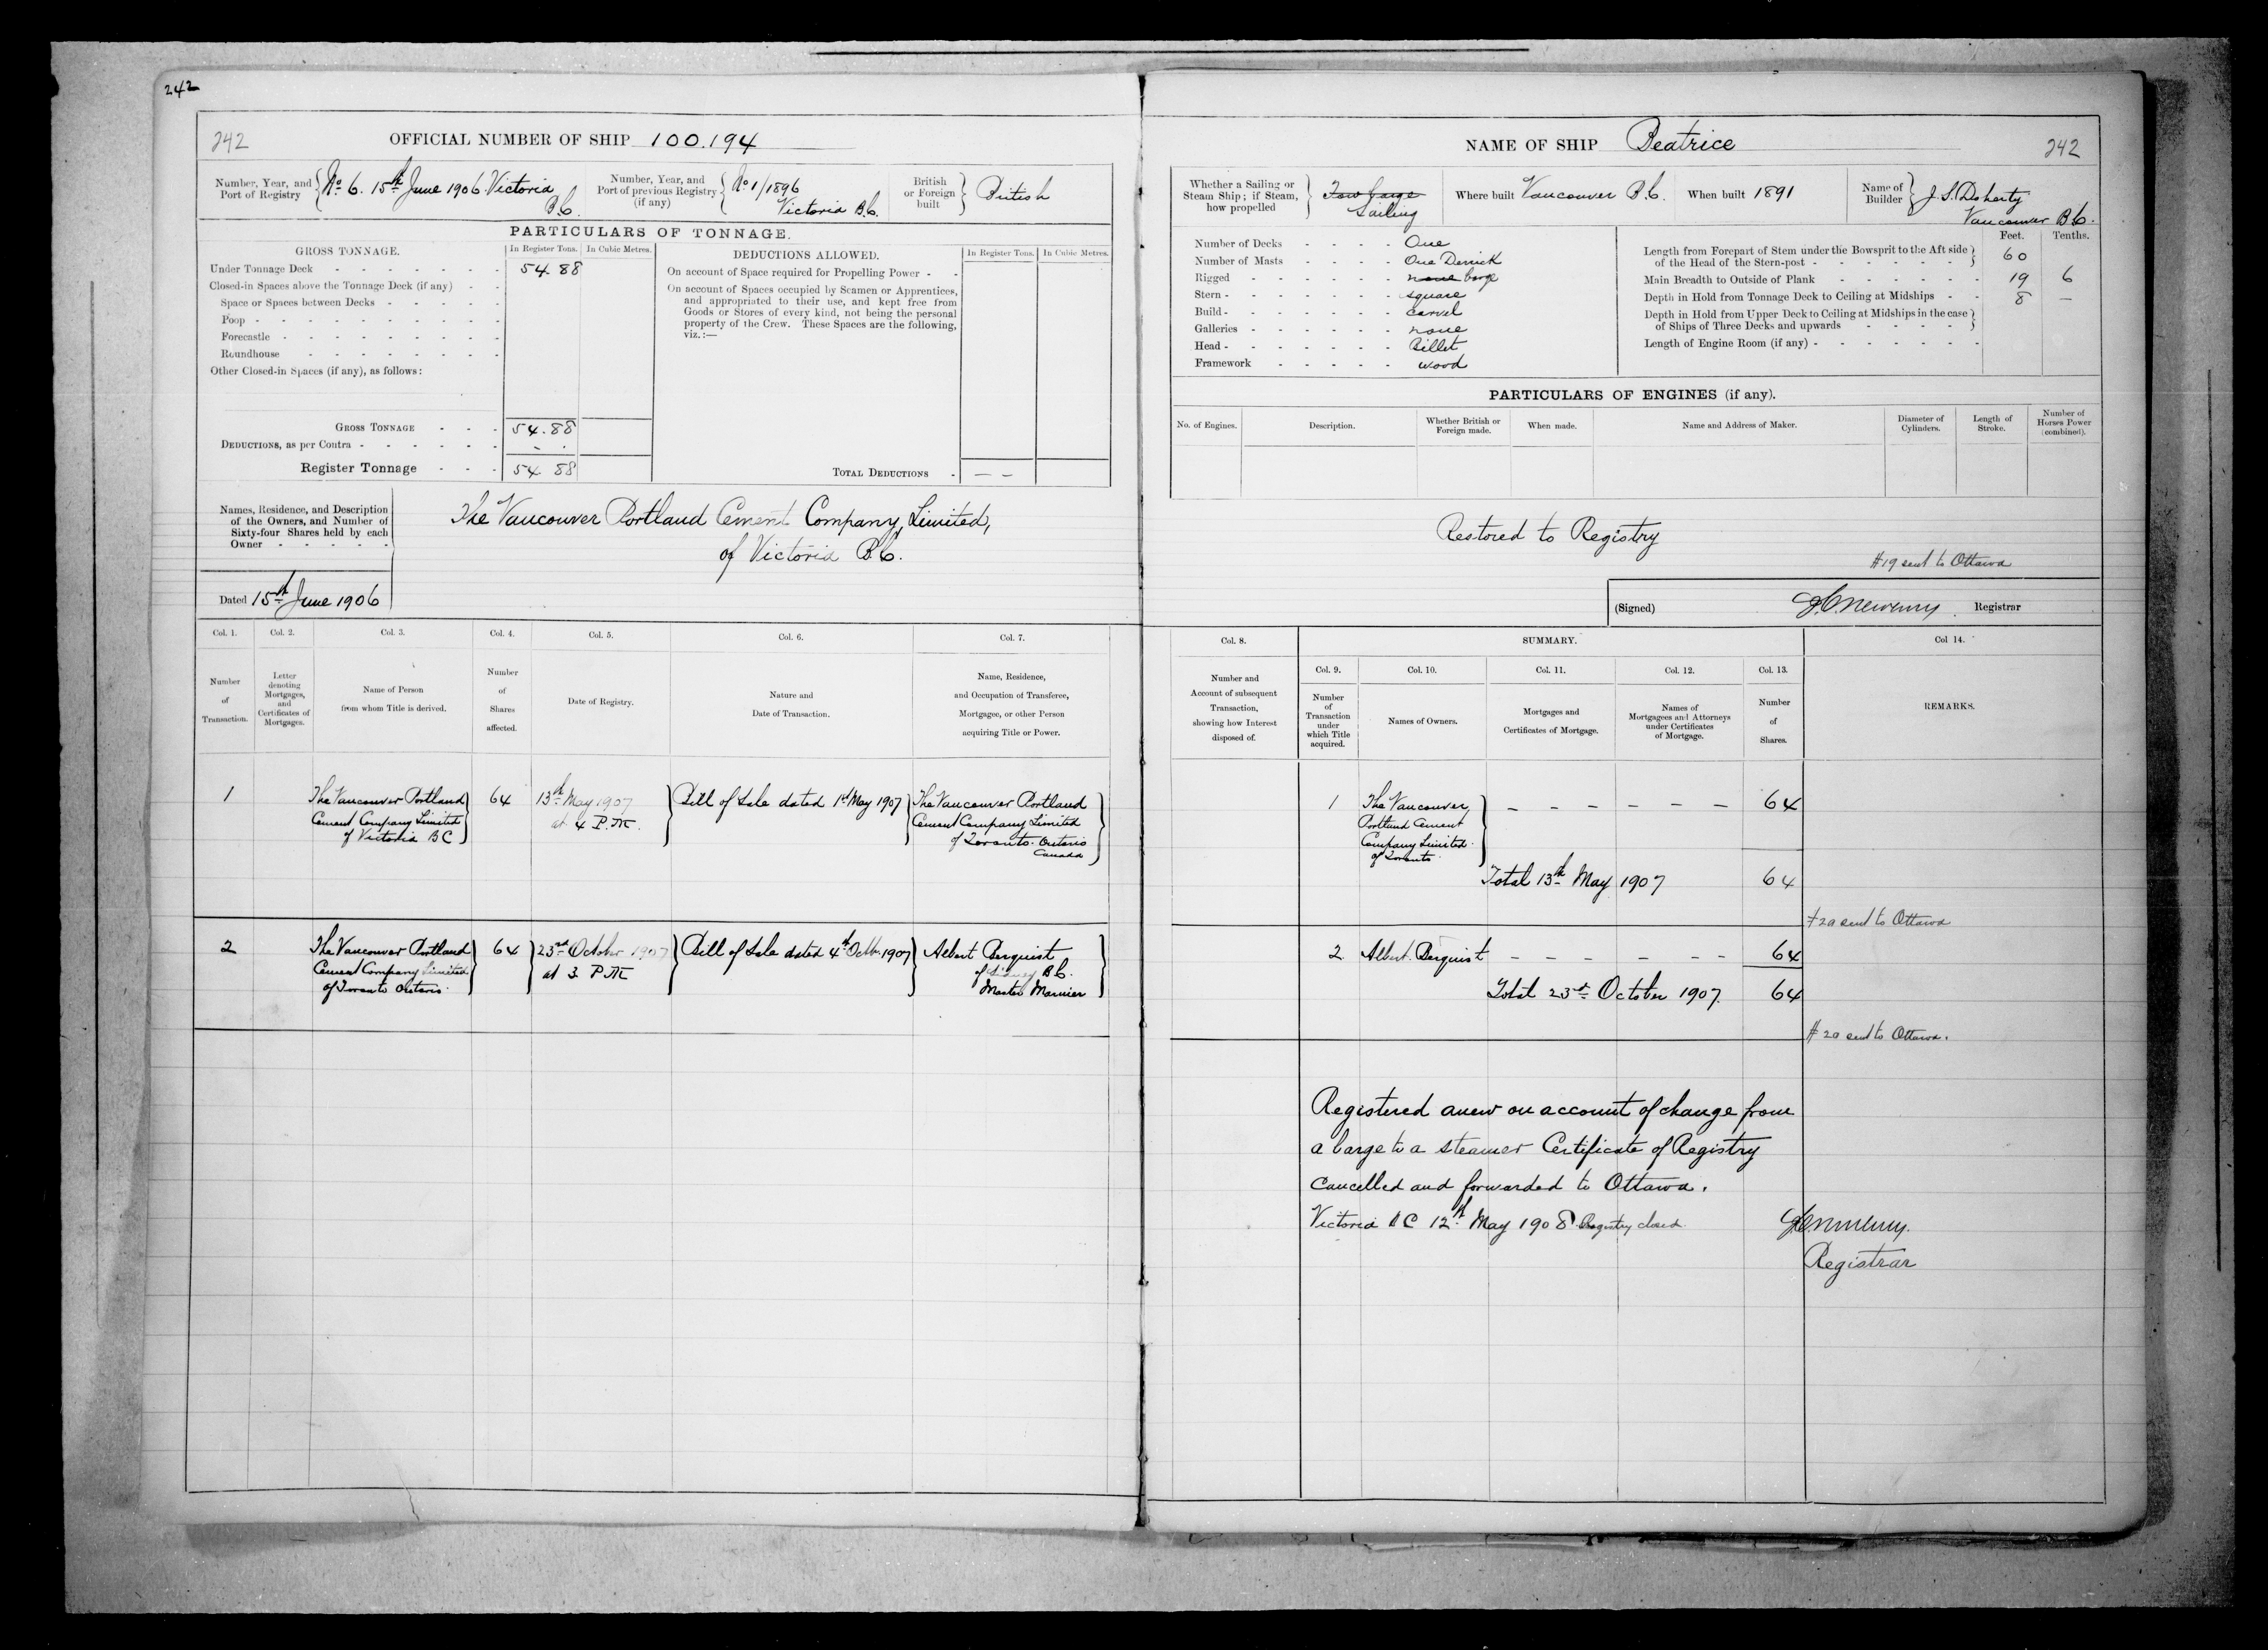 242
242
OFFICIAL NUMBER OF SHIP 100.194
Number, Year, and Port of Registry
No 6. 15th June 1906 Victoria B.C.
Number, Year, and Port of previous Registry (if any)
No 1/1896 Victoria B.C.
British or Foreign built
British
PARTICULARS OF TONNAGE.
GROSS TONNAGE.
In Register Tons.
In Cubic Metres.
DEDUCTIONS ALLOWED.
In Register Tons.
In Cubic Metres.
Under Tonnage Deck 54.88
Closed-in Spaces above the Tonnage Deck (if any)
Space or Spaces between Decks
Poop
Forecastle
Roundhouse
Other Closed-in Spaces (if any), as follows:
On account of Space required for Propelling Power
On account of Spaces occupied by Seamen or Apprentices,
and appropriated to their use, and kept free from
Goods or Stores of every kind, not being the personal
property of the Crew. These Spaces are the following,
viz.:—
GROSS TONNAGE 54.88
DEDUCTIONS, as per Contra - .
Register Tonnage 54.88
TOTAL DEDUCTIONS - — —
Names, Residence, and Description
of the Owners, and Number of
Sixty-four Shares held by each
Owner
The Vancouver Portland Cement Company, Limited,
of Victoria B.C.
Dated 15th June 1906
Col. 1.
Number
of
Transaction.
Col. 2.
Letter
denoting
Mortgages,
and
Certificates of
Mortgages.
Col. 3.
Name of Person
from whom Title is derived.
Col. 4.
Number
of
Shares
affected.
Col. 5.
Date of Registry.
Col. 6.
Nature and
Date of Transaction.
Col. 7.
Name, Residence,
and Occupation of Transferee,
Mortgagee, or other Person
acquiring Title or Power.
1
The Vancouver Portland
Cement Company Limited
of Victoria BC
64
13th May 1907
at 4 P.M.
Bill of Sale dated 1st May 1907
The Vancouver Portland
Cement Company Limited
of Toronto. Ontario
Canada
2
The Vancouver Portland
Cement Company Limited
of Toronto Ontario.
64
23rd October 1907
at 3. P.M.
Bill of Sale dated 4th Octbr. 1907
Albert Berquist
of Sidney B.C.
Master Mariner
NAME OF SHIP Beatrice
242
Whether a Sailing or
Steam Ship; if Steam,
how propelled
Tow barge
Sailing
Where built Vancouver B.C.
When built 1891
Name of Builder
J. S. Doherty
Vancouver B.C.
Number of Decks One
Number of Masts One Derrick
Rigged none barge
Stern square
Build carvel
Galleries none
Head Billet
Framework wood
Feet. Tenths.
Length from Forepart of Stem under the Bowsprit to the Aft side
of the Head of the Stern-post 60
Main Breadth to Outside of Plank 19 6
Depth in Hold from Tonnage Deck to Ceiling at Midships 8 —
Depth in Hold from Upper Deck to Ceiling at Midships in the case
of Ships of Three Decks and upwards
Length of Engine Room (if any)
PARTICULARS OF ENGINES (if any).
No. of Engines.
Description.
Whether British or
Foreign made.
When made.
Name and Address of Maker.
Diameter of
Cylinders.
Length of
Stroke.
Number of
Horses Power
(combined).
Restored to Registry
#19 sent to Ottawa
(Signed) Registrar
Col. 8.
Number and
Account of subsequent
Transaction,
showing how Interest
disposed of.
SUMMARY.
Col. 9.
Number
of
Transaction
under
which Title
acquired.
Col. 10.
Names of Owners.
Col. 11.
Mortgages and
Certificates of Mortgage.
Col. 12.
Names of
Mortgagees and Attorneys
under Certificates
of Mortgage.
Col. 13.
Number
of
Shares.
Col 14.
REMARKS.
1
The Vancouver
Portland Cement
Company Limited
of Toronto
— — — — — — 64
Total 13th May 1907 64
#20 sent to Ottawa
2. Albert Berquist — — — — — — 64
Total 23rd October 1907. 64
#20 sent to Ottawa.
Registered anew on account of change from
a barge to a steamer Certificate of Registry
cancelled and forwarded to Ottawa.
Victoria BC 12th May 1908 Registry closed.
Registrar